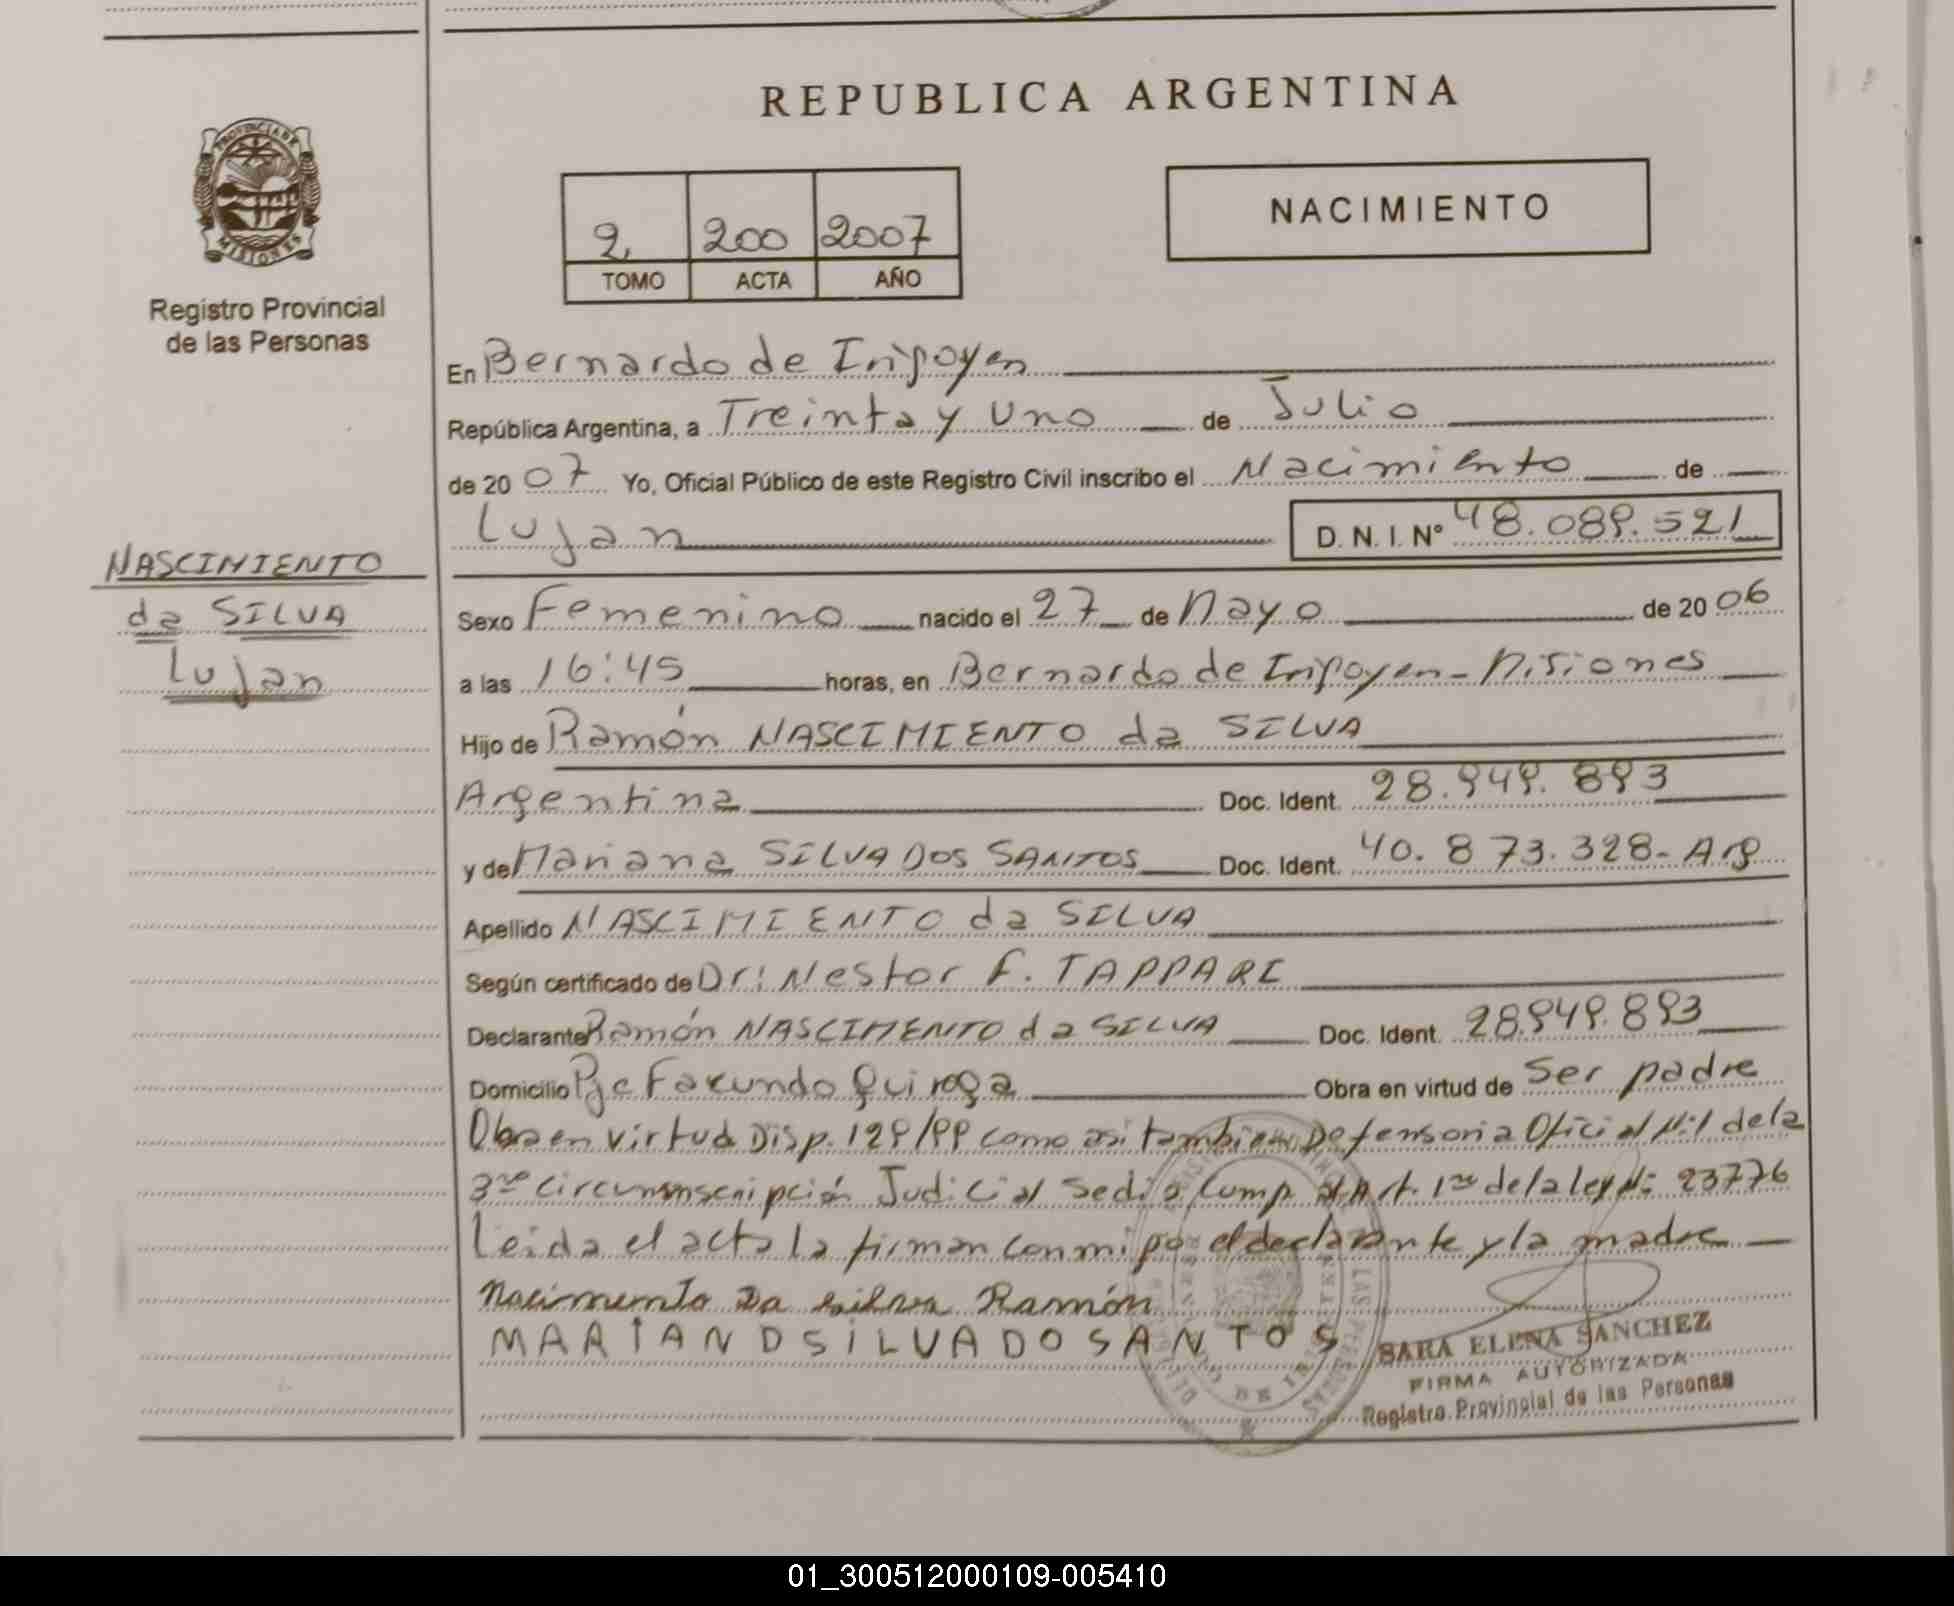 REPUBLICA ARGENTINA
PROVINCIA DE
MISIONES
Registro Provincial
de las Personas
2 200 2007
TOMO ACTA AÑO
NACIMIENTO
En Bernardo de Irigoyen
República Argentina, a Treinta y Uno de Julio
de 2007 Yo, Oficial Público de este Registro Civil inscribo el Nacimiento de
Lujan D. N. I. Nº 48.089.521
NASCIMIENTO
da SILVA
Lujan
Sexo Femenino nacido el 27 de Mayo de 2006
a las 16:45 horas, en Bernardo de Irigoyen - Misiones
Hijo de Ramón NASCIMIENTO da SILVA
Argentina Doc. Ident. 28.949.893
y de Mariana SILVA DOS SANTOS Doc. Ident. 40.873.328- Arg
Apellido NASCIMIENTO da SILVA
Según certificado de Dr: Nestor F. TAPPARI
Declarante Ramón NASCIMENTO da SILVA Doc. Ident. 28.949.893
Domicilio Pje Facundo Quiroga Obra en virtud de Ser padre
Obra en virtud Disp. 129/99 como asi tambien Defensoria Oficial Nº1 de la
3ra Circunmscripción Judicial Sedio Cump al Art. 1ro de la ley Nº: 23776
Leida el acta la firman conmigo el declarante y la madre
Nacimento Da Silva Ramón
MARIANDSILVADOSANTOS
SARA ELENA SANCHEZ
FIRMA AUTORIZADA
Registro Provincial de las Personas
01_300512000109-005410